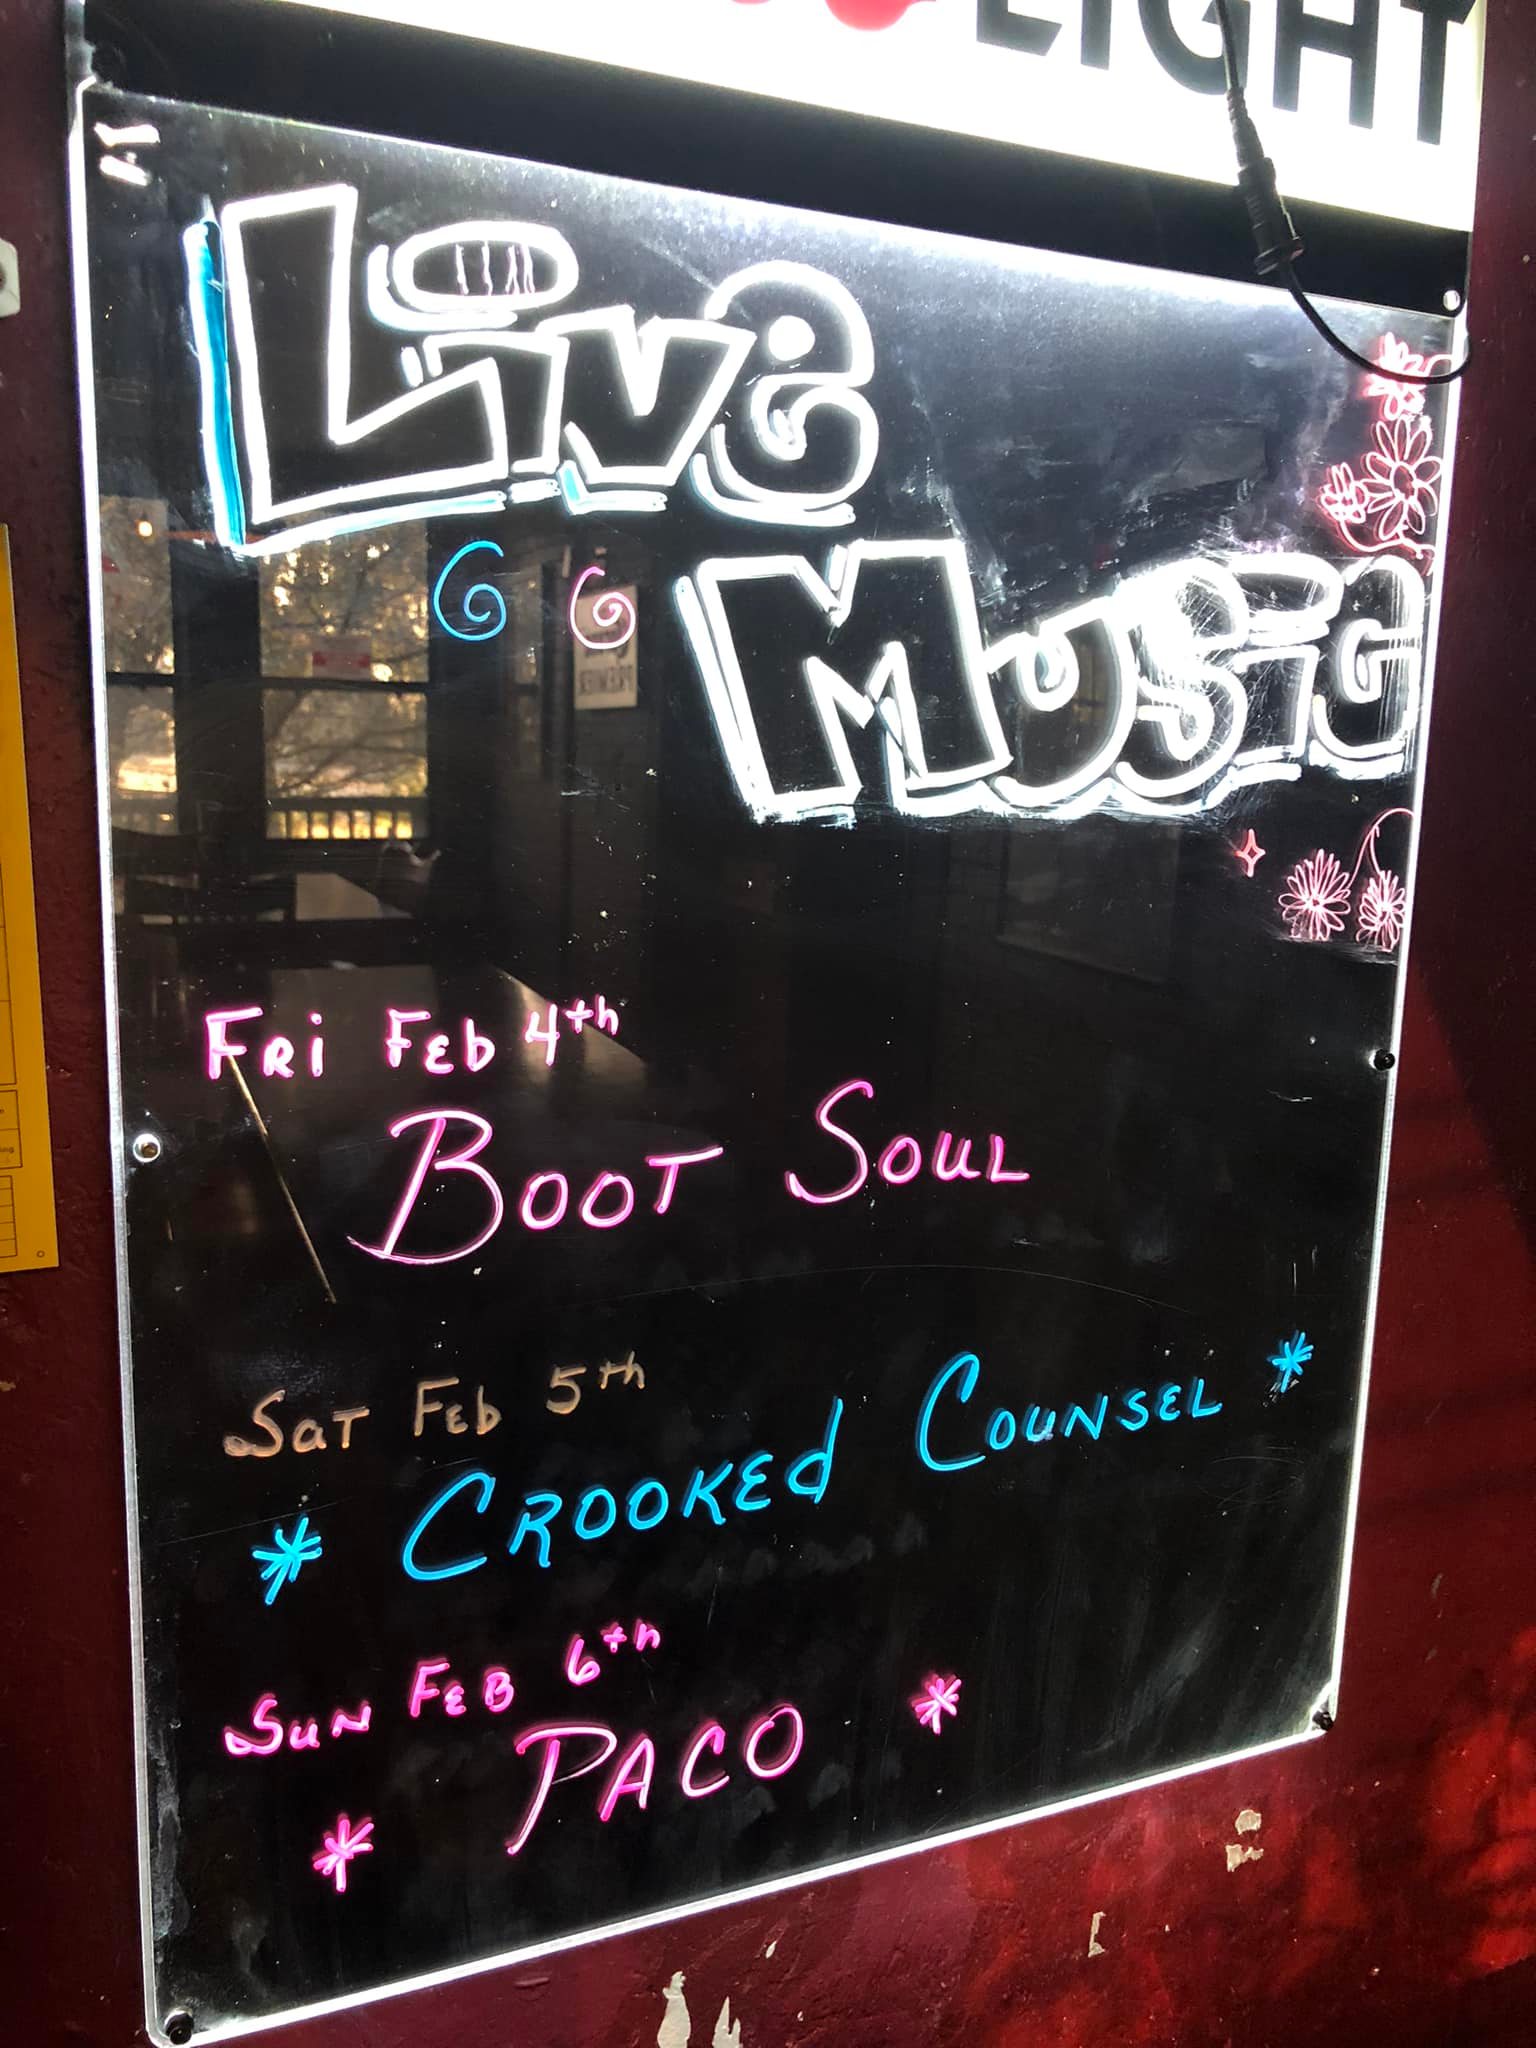 LIGHT
Live
Music
Fri Feb 4th
Boot Soul
Sat Feb 5th
* Crooked Counsel *
Sun Feb 6th
* Paco *